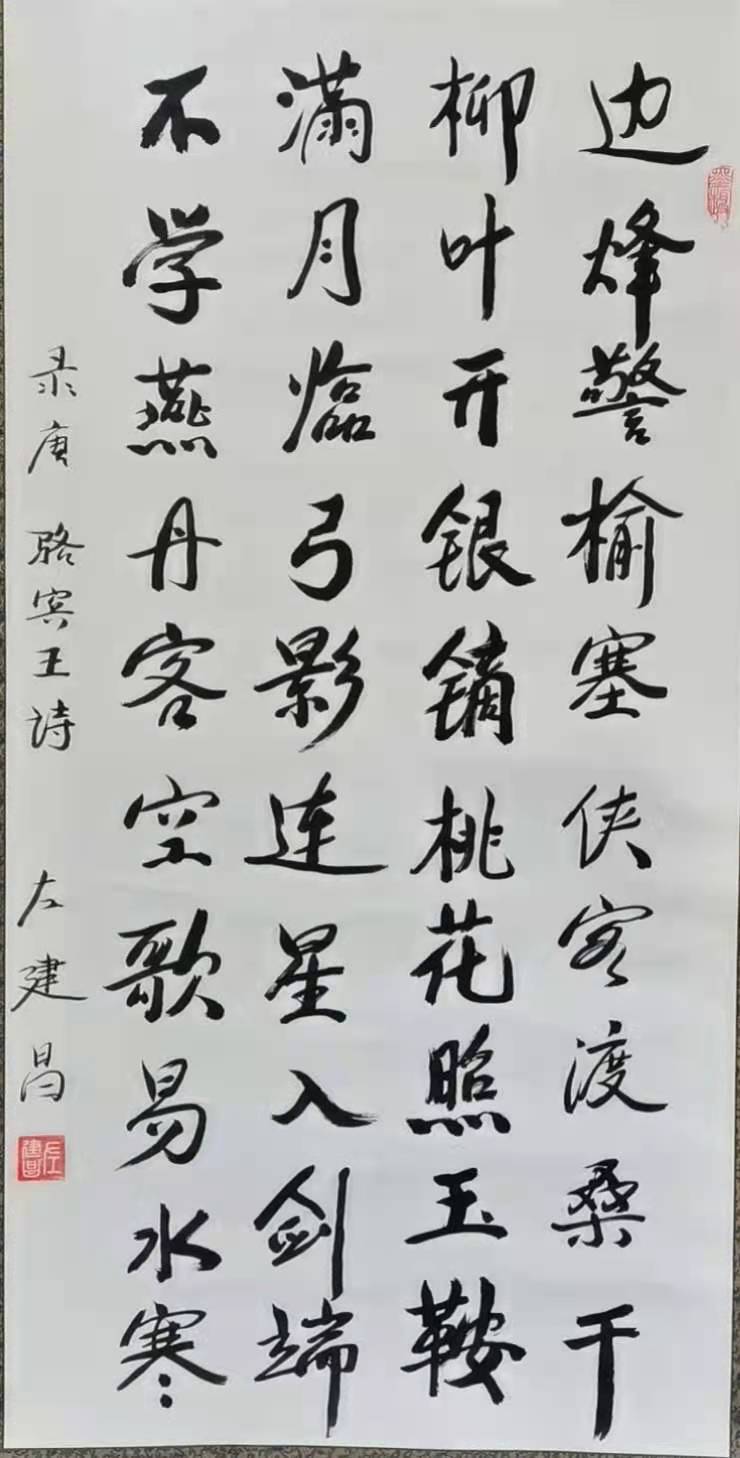 边烽警榆塞侠客渡桑干
柳叶开银镝桃花照玉鞍
满月临弓影连星入剑端
不学燕丹客空歌易水寒
录唐 骆宾王诗 左建昌
左建昌